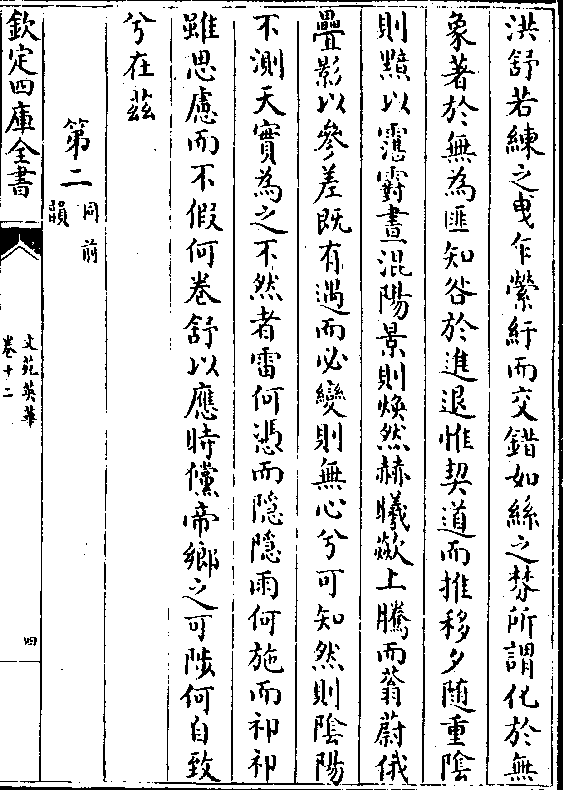 洪舒若練之曵乍縈紆而交錯如絲之棼所謂化於無
象著於無為匪知咎於進退惟契道而推移夕随重陰
則黯以霮䨴晝混陽景則煥然赫曦歘上騰而蓊蔚俄
疊影以參差既有遇而必變則無心兮可知然則陰陽
不測天實為之不然者雷何憑而隠隠雨何施而祁祁
雖思慮而不假何卷舒以應時儻帝鄉之可陟何自致
兮在茲
第二同前韻
欽定四庫全書
文苑英華
卷十二
四